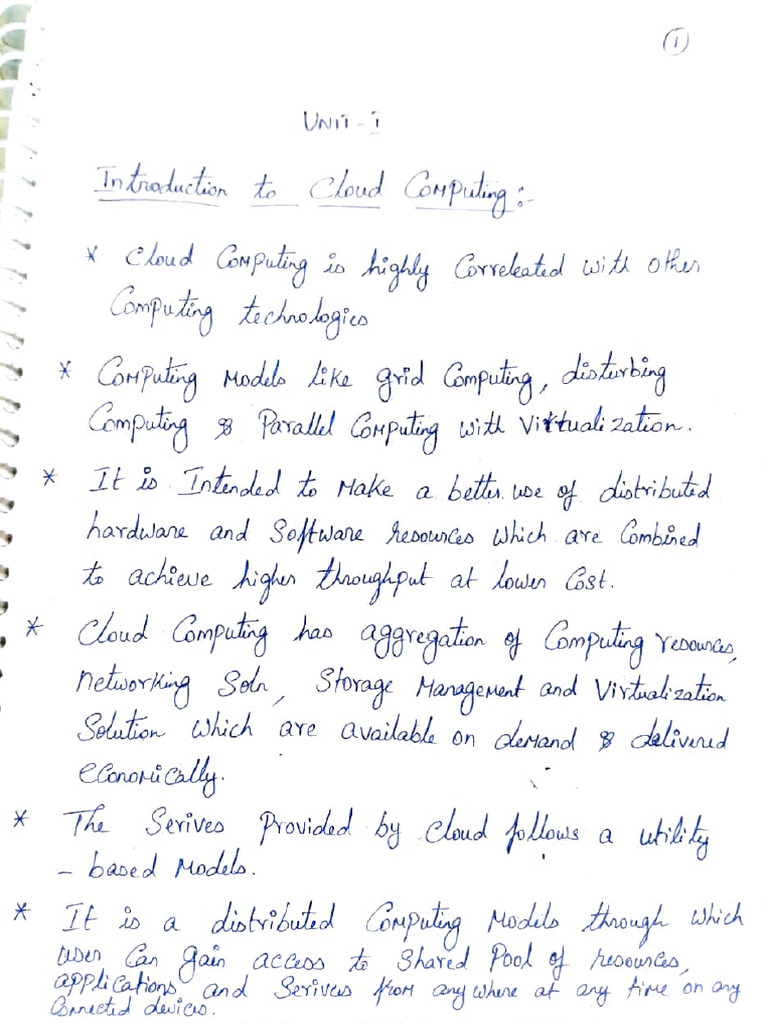 1
UNIT-I
Introduction to Cloud Computing:-
* Cloud Computing is highly Correleated with other
Computing technologies
* Computing Models like grid Computing, disturbing
Computing & Parallel Computing with Virtualization.
* It is Intended to Make a better use of distributed
hardware and Software resources which are Combined
to achieve higher throughput at lower Cost.
* Cloud Computing has aggregation of Computing resources,
networking Soln, Storage Management and Virtualization
Solution which are available on demand & delivered
economically.
* The Serives Provided by cloud follows a utility
- based Models.
* It is a distributed Computing Models through which
user Can gain access to Shared Pool of resources,
applications and Serives from anywhere at any time on any
Connected devices.